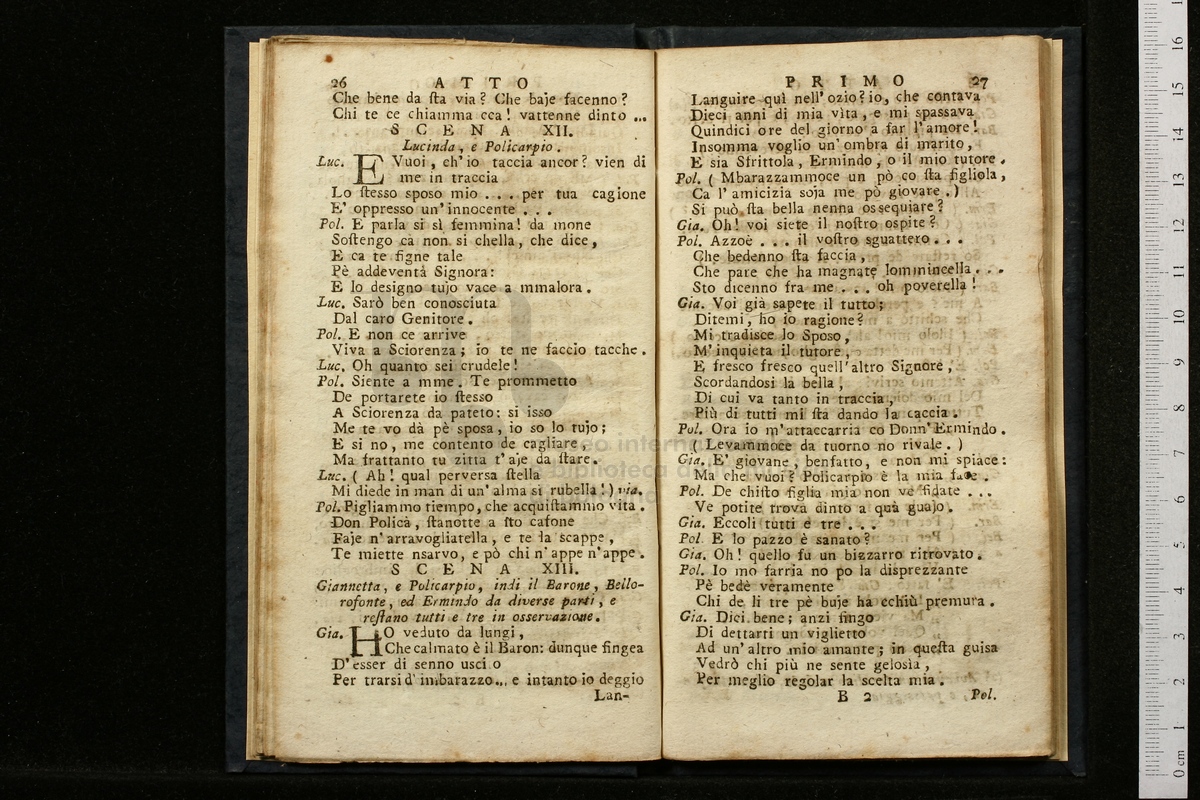 26 ATTO
Che bene da ſta via? Che baje facenno?
Chi te ce chiamma cca! vattenne dinto ...
SCENA XII.
Lucinda, e Policarpio.
Luc. E Vuoi, ch'io taccia ancor? vien di
me in traccia
Lo ſteſſo sposo mio ... per tua cagione
E' oppresso un'innocente ...
Pol. E parla si sì femmina! da mone
Soſtengo ca non si chella, che dice,
E ca te figne tale
Pè addeventà Signora:
E lo designo tujo vace a mmalora.
Luc. Sarò ben conosciuta
Dal caro Genitore.
Pol. E non ce arrive
Viva a Sciorenza; io te ne faccio tacche.
Luc. Oh quanto sei crudele!
Pol. Siente a mme. Te prommetto
De portarete io ſteſſo
A Sciorenza da pateto: si isso
Me te vo dà pè sposa, io so lo tujo;
E si no, me contento de cagliare,
Ma frattanto tu zitta t'aje da ſtare.
Luc. (Ah! qual perversa ſtella
Mi diede in man di un'alma sì rubella!) via.
Pol. Pigliammo tiempo, che acquiſtammo vita.
Don Policà, ſtanotte a ſto cafone
Faje n'arravogliatella, e te la scappe,
Te miette nsarvo, e pò chi n'appe n'appe.
SCENA XIII.
Giannetta, e Policarpio, indi il Barone, Bello-
rofonte, ed Ermindo da diverse parti, e
reſtano tutti e tre in osservazione.
Gia. HO veduto da lungi,
Che calmato è il Baron: dunque fingea
D'esser di senno uscito
Per trarsi d'imbarazzo... e intanto io deggio
Lan-
PRIMO 27
Languire quì nell'ozio? io, che contava
Dieci anni di mia vita, e mi spassava
Quindici ore del giorno a far l'amore!
Insomma voglio un'ombra di marito,
E sia Sfrittola, Ermindo, o il mio tutore.
Pol. (Mbarazzammoce un pò co ſta figliola,
Ca l'amicizia soja me pò giovare.)
Si può ſta bella nenna ossequiare?
Gia. Oh! voi siete il noſtro ospite?
Pol. Azzoè ... il voſtro sguattero ...
Che bedenno ſta faccia,
Che pare che ha magnate lommincella...
Sto dicenno fra me ... oh poverella!
Gia. Voi già sapete il tutto;
Ditemi, ho io ragione?
Mi tradisce lo Sposo,
M'inquieta il tutore,
E fresco fresco quell'altro Signore,
Scordandosi la bella,
Di cui va tanto in traccia,
Più di tutti mi ſta dando la caccia.
Pol. Ora io m'attaccarria co Donn'Ermindo.
(Levammoce da tuorno no rivale.)
Gia. E' giovane, benfatto, e non mi spiace:
Ma che vuoi? Policarpio è la mia
Pol. De chiſto figlia mia non ve fidate ...
Ve potite trovà dinto a quà guajo.
Gia. Eccoli tutti e tre ...
Pol. E lo pazzo è sanato?
Gia. Oh! quello fu un bizzarro ritrovato.
Pol. Io mo farria no po la disprezzante
Pè bedè veramente
Chi de li tre pè buje ha cchiù premura.
Gia. Dici bene; anzi fingo
Di dettarti un viglietto
Ad un'altro mio amante; in queſta guisa
Vedrò chi più ne sente gelosia,
Per meglio regolar la scelta mia.
B 2 Pol.